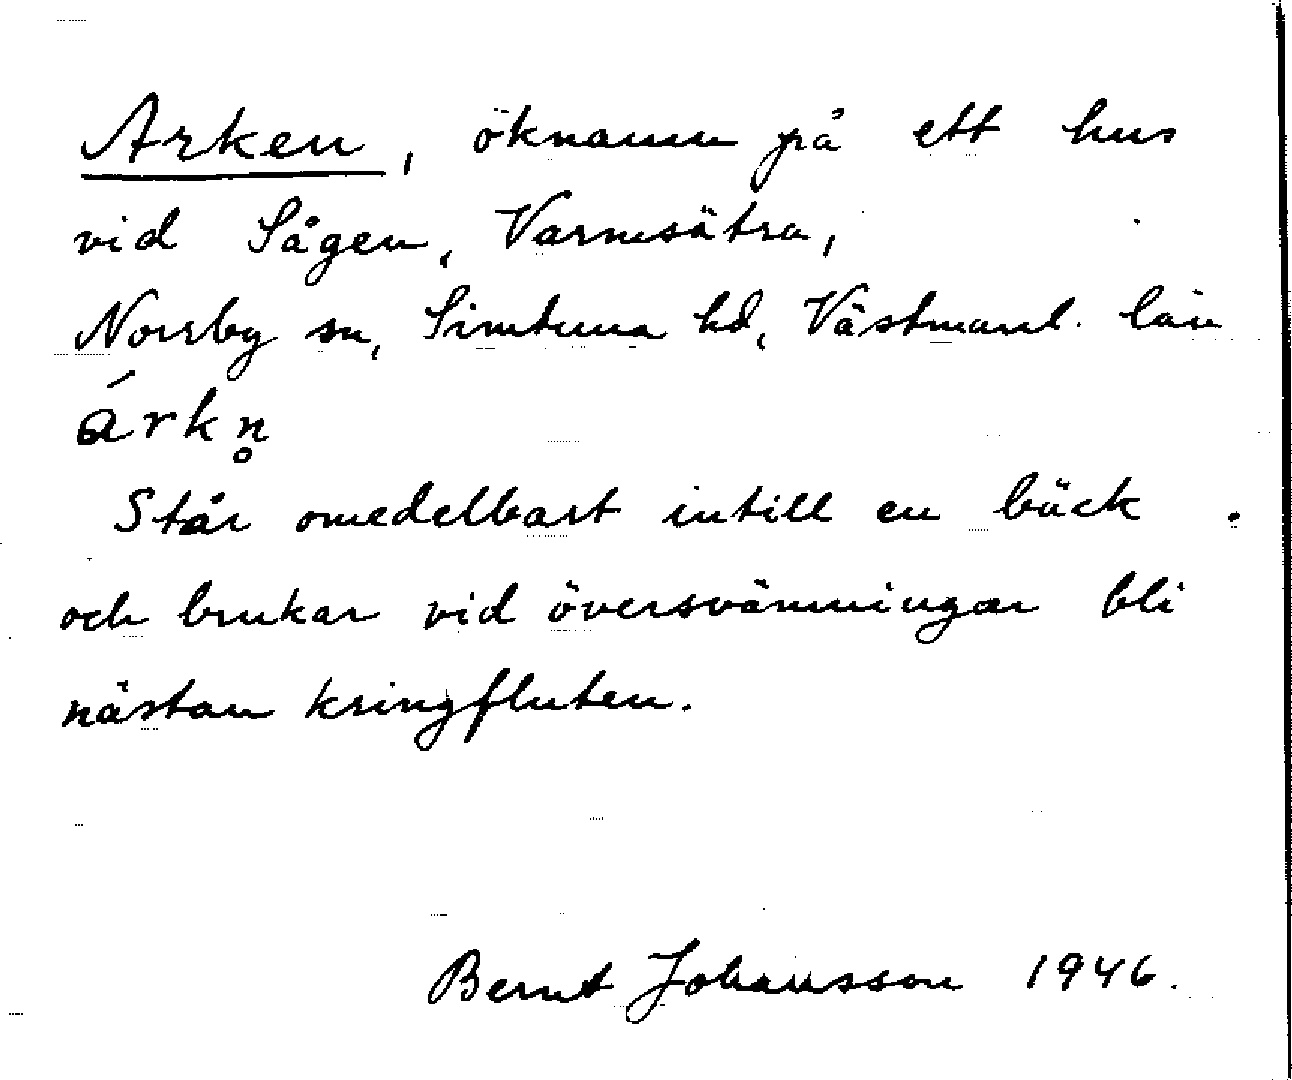 Arken, öknamn på ett hus
vid Sågen, Varmsätra,
Norrby sn, Simtuna hd, Västmanl. län
árkn̥
Står omedelbart intill en bäck
och brukar vid översvämningar bli
nästan kringfluten.
Bernt Johansson 1946.